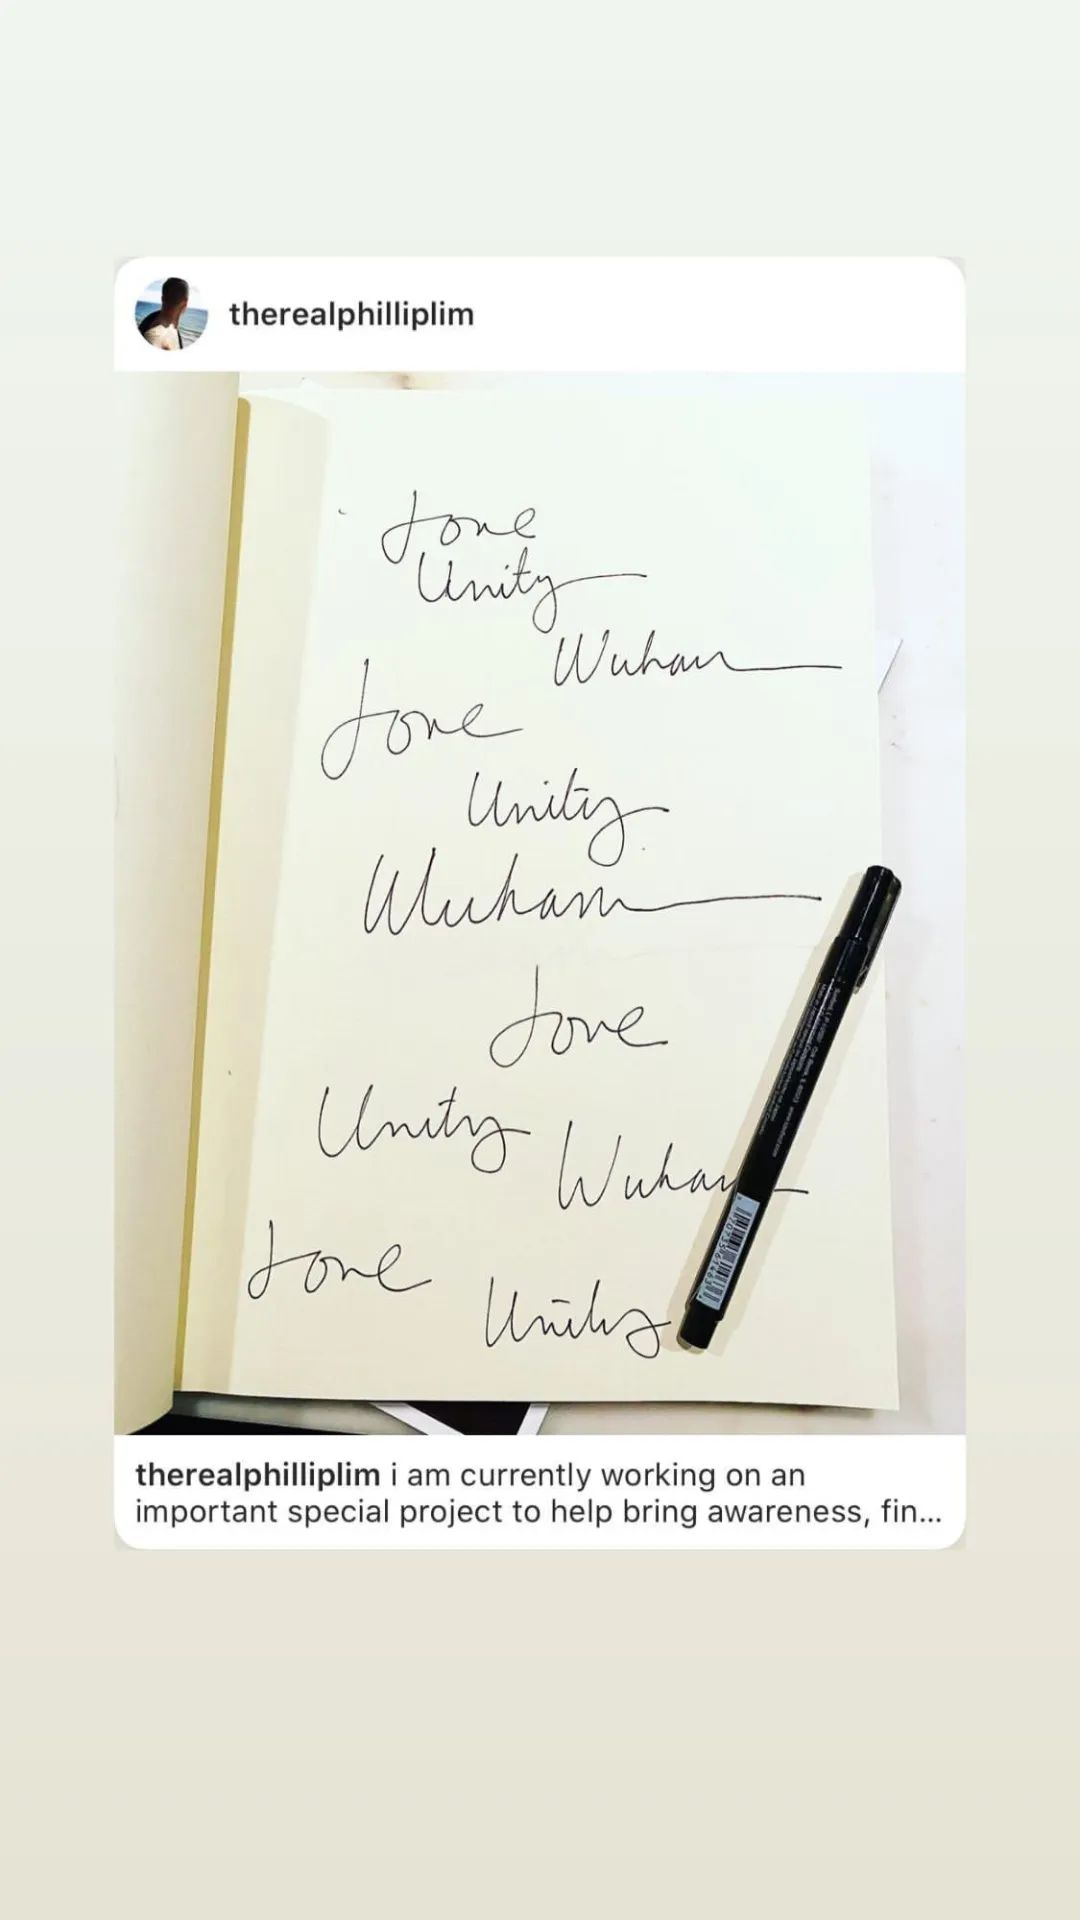 therealphilliplim
Love
Unity
Wuhan
Love
Unity
Wuhan
Love
Unity
Wuhan
Love
Unity
therealphilliplim i am currently working on an
important special project to help bring awareness, fin...